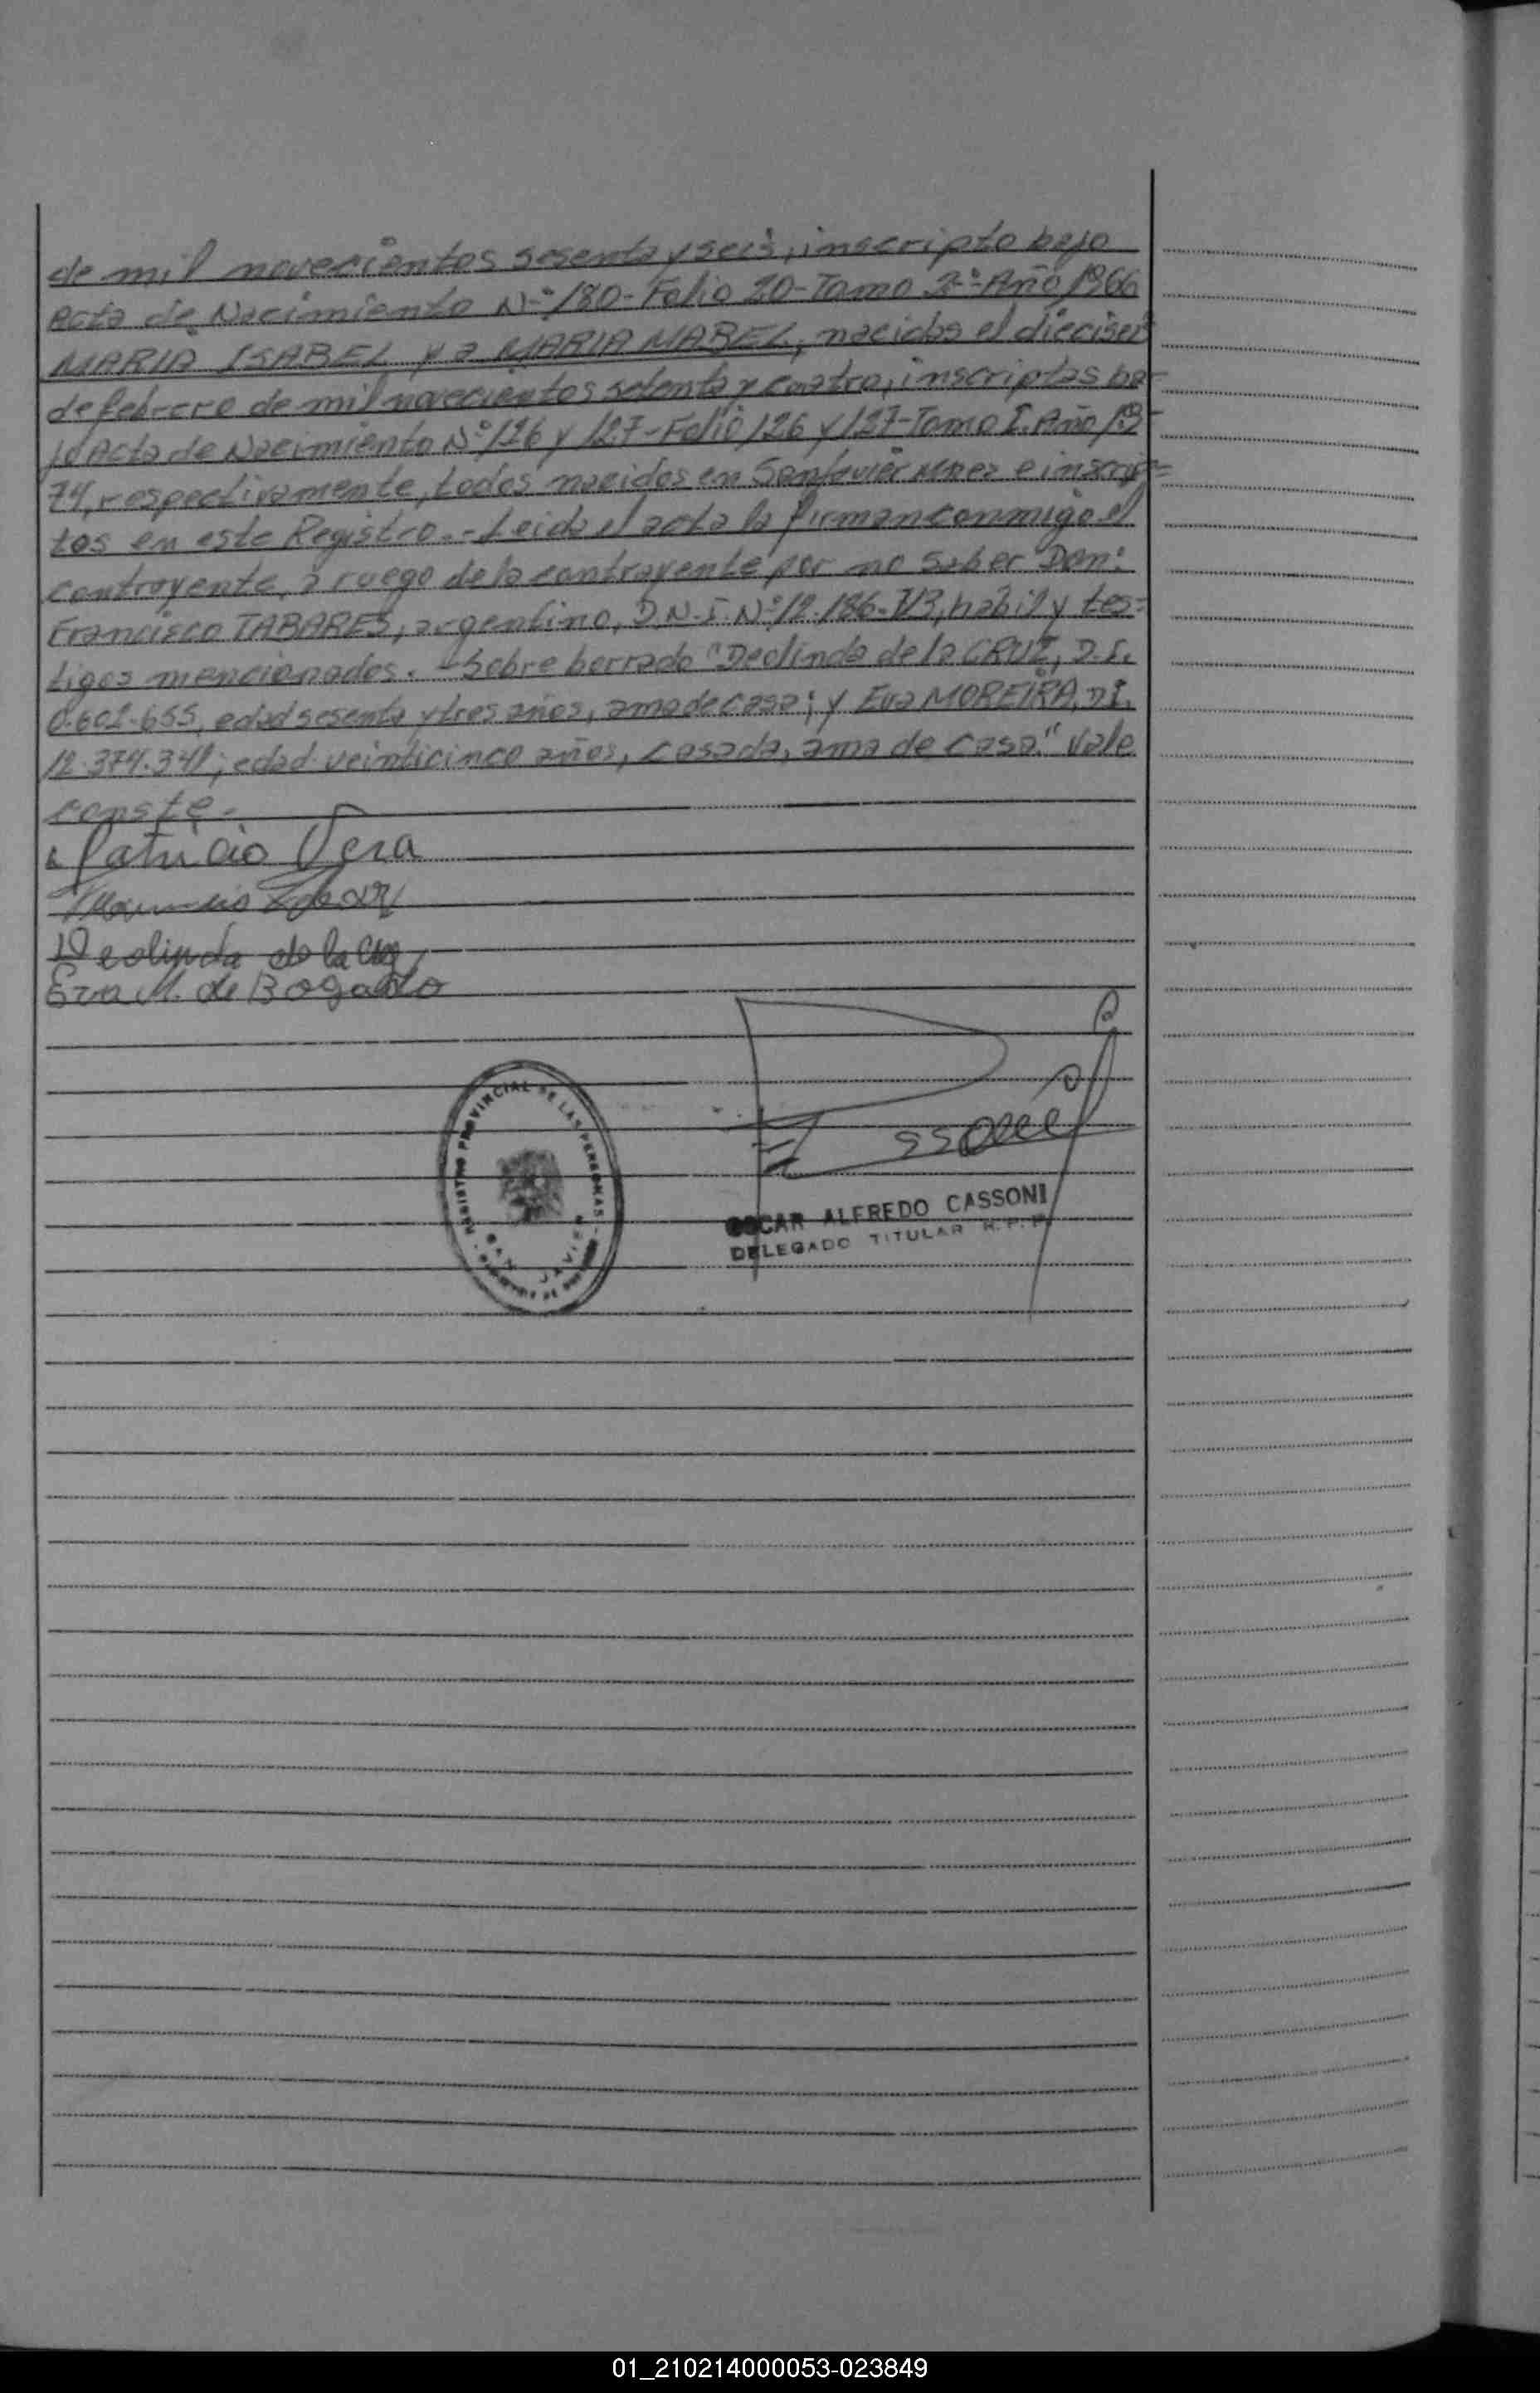 de mil novecientos sesenta y seis, inscripto bajo
Acta de Nacimiento Nº 180- Folio 20- Tomo 3º- Año 1966
MARIA ISABEL y a MARIA MABEL, nacidas el dieciseis
de febrero de mil novecientos setenta y cuatro, inscriptas ba=
jo Acta de Nacimiento Nº 126 y 127- Folio 126 y 127- Tomo I. Año 19
74, respectivamente, todos nacidos en San Javier Mnes e inscrip=
tos en este Registro.- Leida el acta la firman conmigo el
contrayente, a ruego de la contrayente por no saber Don:
Francisco TABARES, argentino, D.N.I. Nº 12.186.713, habil y tes=
tigos mencionados.- Sobre borrado "Deolinda de la CRUZ, D.I.
0.602.655, edad sesenta y tres años, ama de casa; y Eva MOREIRA, D.I.
12.374.341; edad veinticinco años, casada, ama de casa." Vale
conste.-
Patricio Vera
Deolinda de la Cruz
Eva M. de Bogado
REGISTRO PROVINCIAL DE LAS PERSONAS
JAVIER
OSCAR ALFREDO CASSONI
DELEGADO TITULAR R.P.P.
01_210214000053-023849